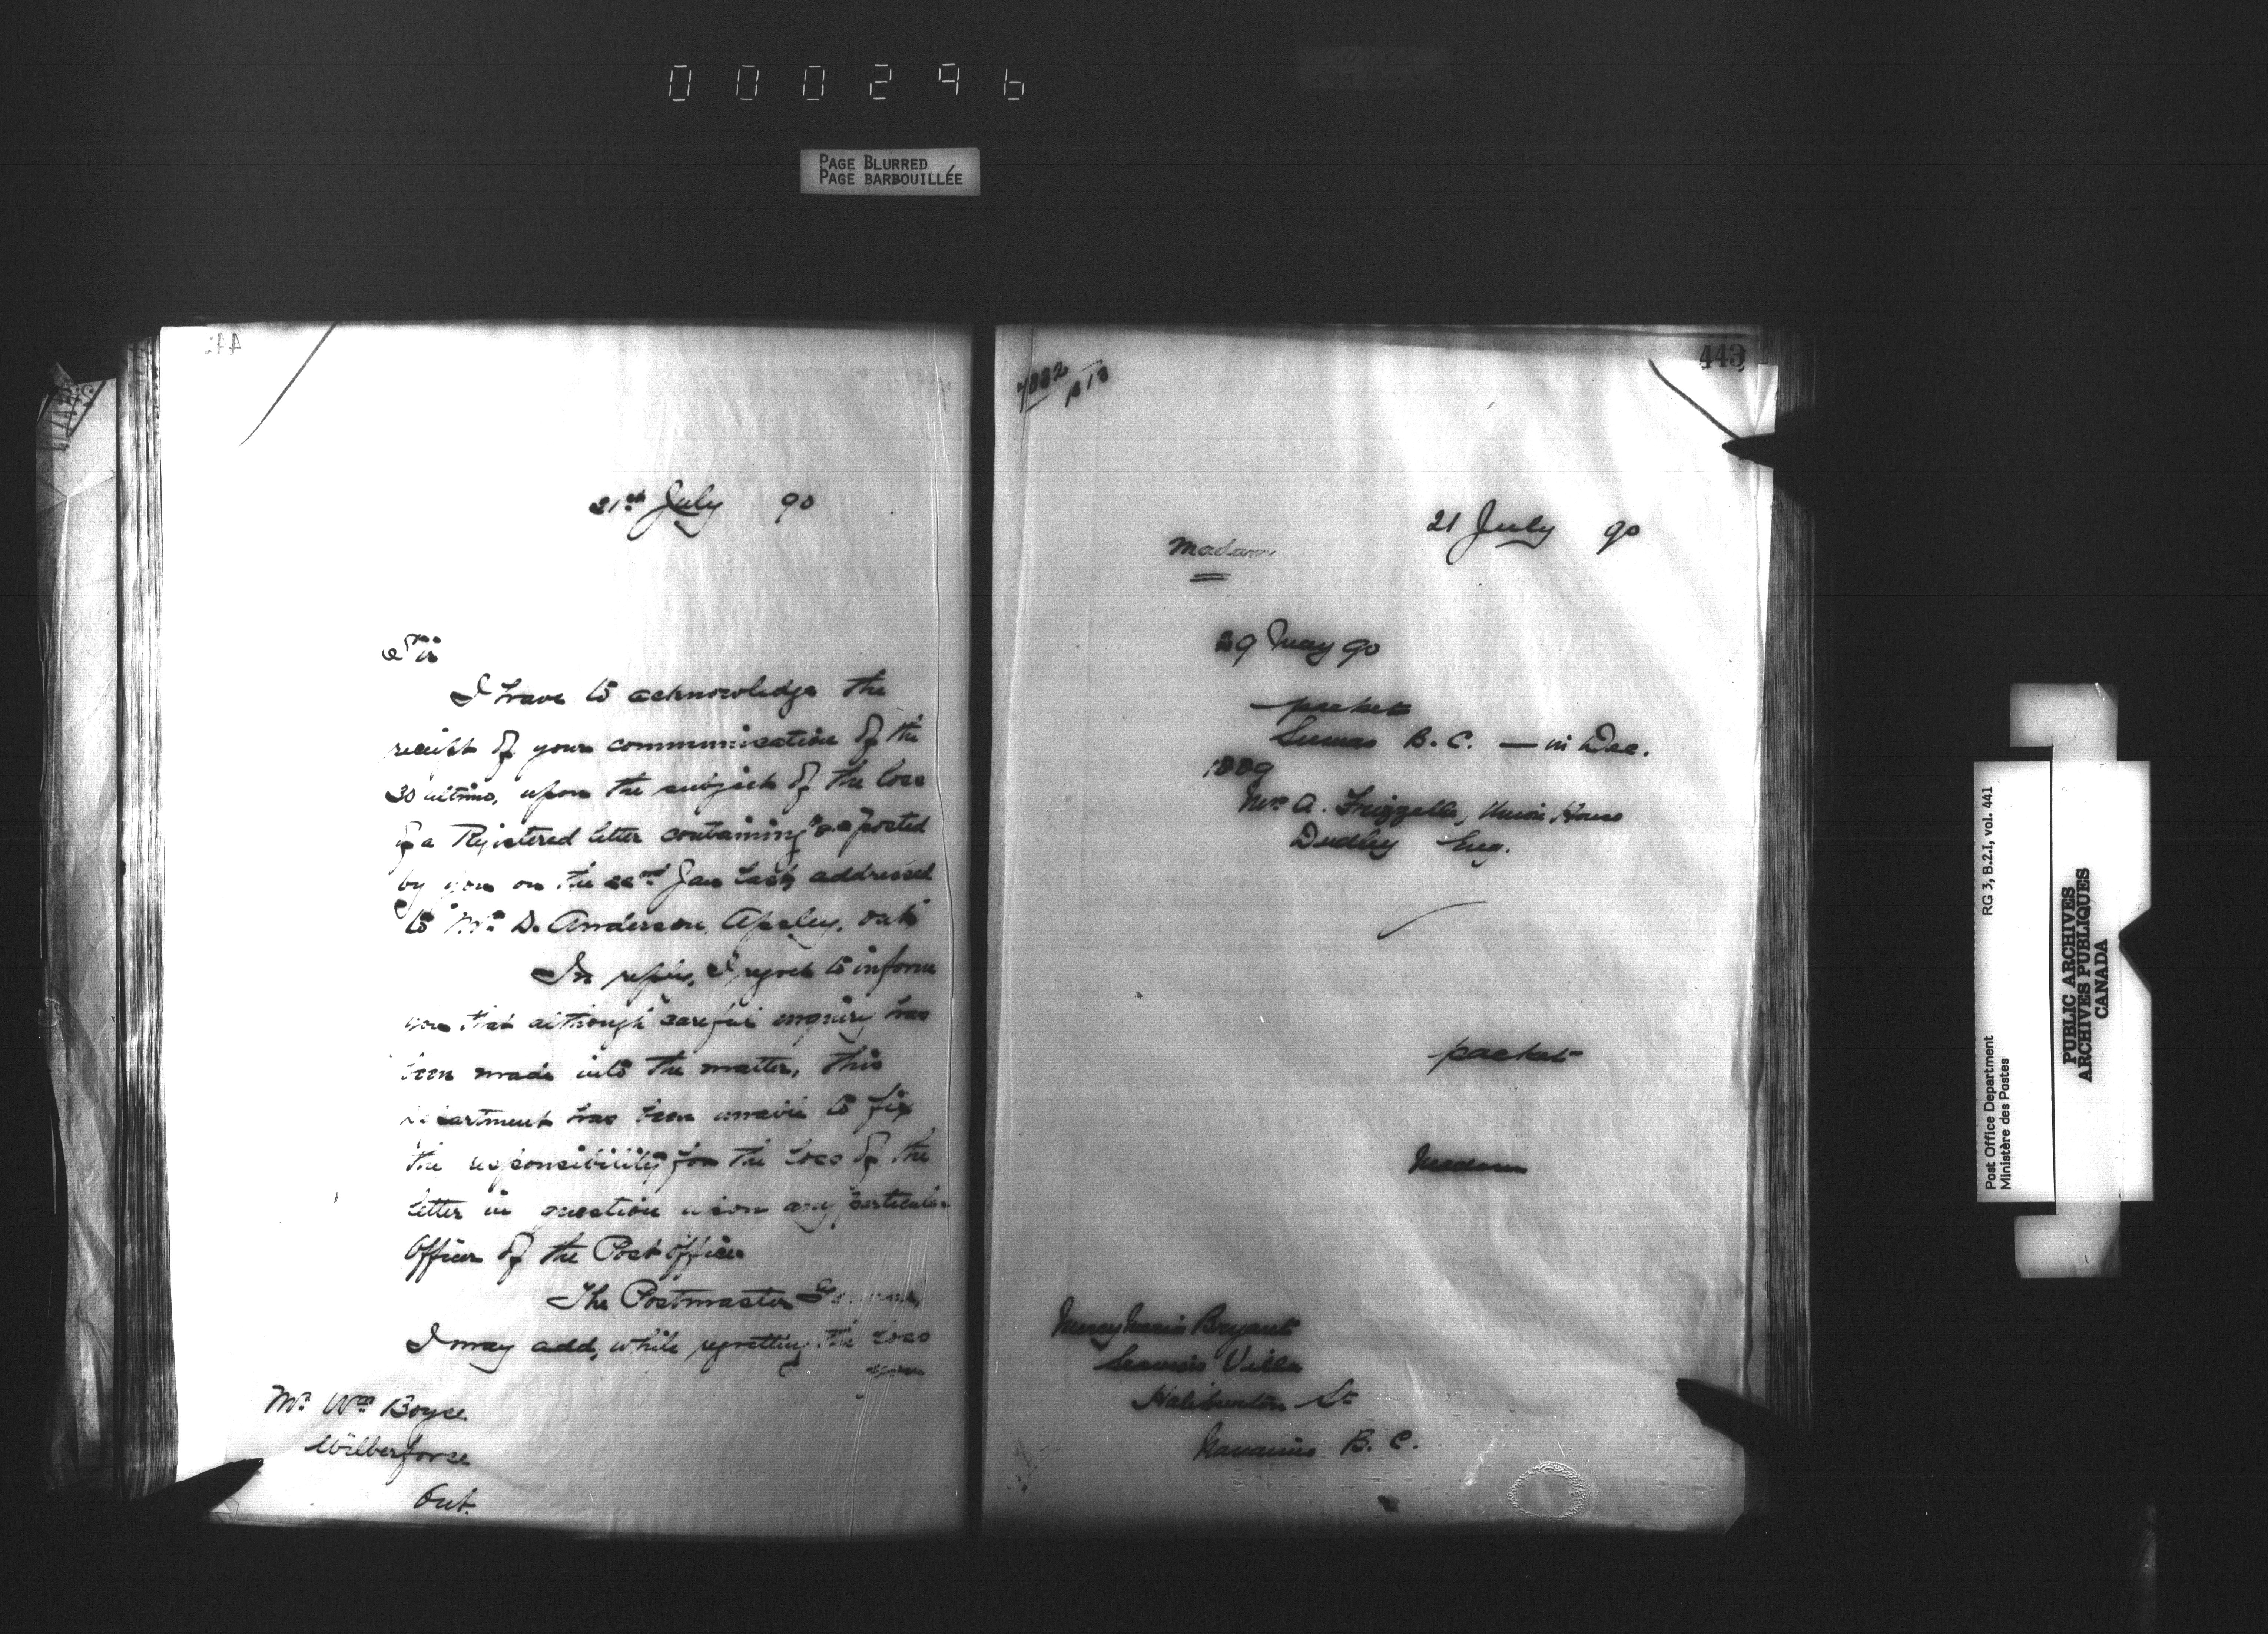 000296
PAGE BLURRED
PAGE BARBOUILLÉE
21st July 90
Sir
I have to acknowledge the
receipt of your communication of the
30 ultimo, upon the subject of the loss
of a Registered letter containing posted
by you on the 22nd Jan last, addressed
to Mr. D. Anderson, Apsley, Ont.
In reply, I regret to inform
you that although careful enquiry has
been made into the matter, this
Department has been unable to fix
the responsibility for the loss of the
letter in question upon any particular
Officer of the Post Office.
The Postmaster General,
I may add, while regretting the loss
your
Mr. Wm Boyce
Wilberforce
Ont.
443
21 July 90
Madam
29 May 90
packet
Sumas B.C. — in Dec.
1889
Mrs. A. Frizzelle, Union House
Dudley Eng.
packet
Madam
Bryant
Villa
Haliburton St
Nanaimo B.C.
Post Office Department RG 3, B.2.1, vol. 441
Ministère des Postes
PUBLIC ARCHIVES
ARCHIVES PUBLIQUES
CANADA